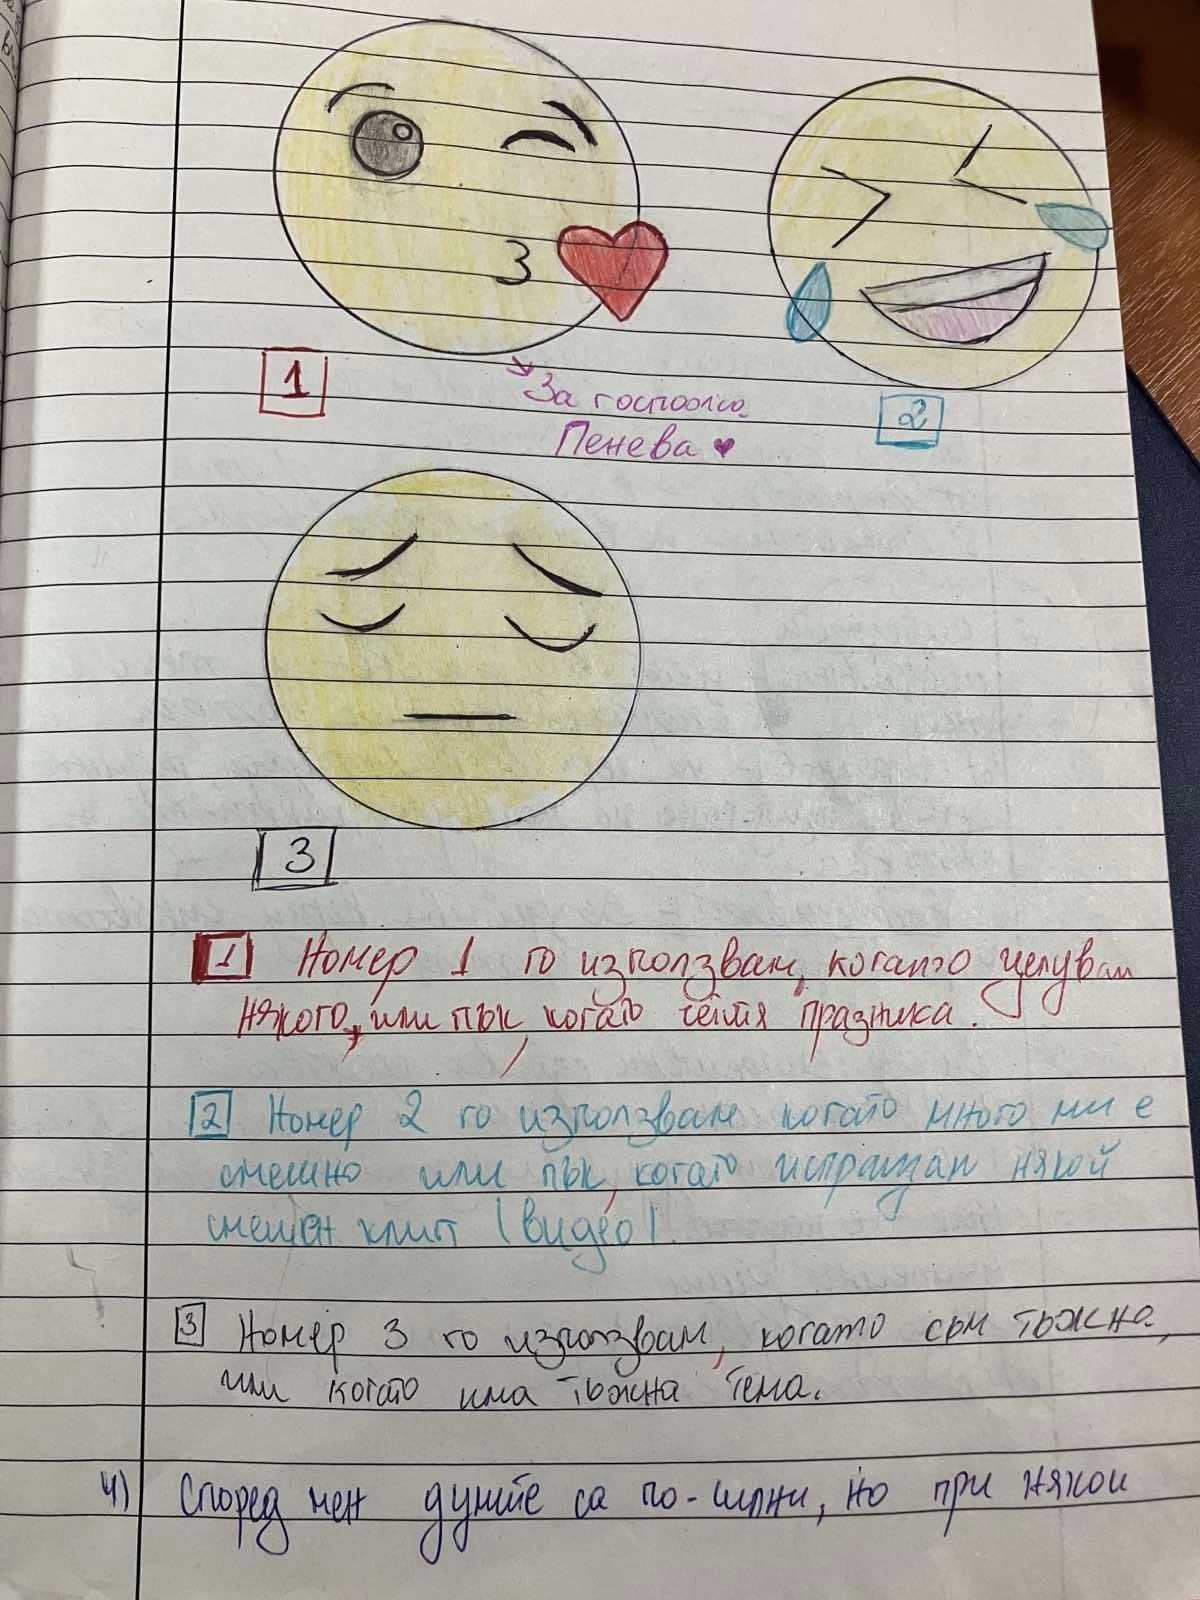 1
2
За госпожа
Пенева ♥
3
1 Номер 1 го използвам, когато целувам
някого, или пък, когато честитя празника.
2 Номер 2 го използвам когато много ми е
смешно или пък, когато изпращам някой
смешен клип (видео).
3 Номер 3 го използвам, когато съм тъжна,
или когато има тъжна тема.
4) Според мен думите са по-силни, но при някои